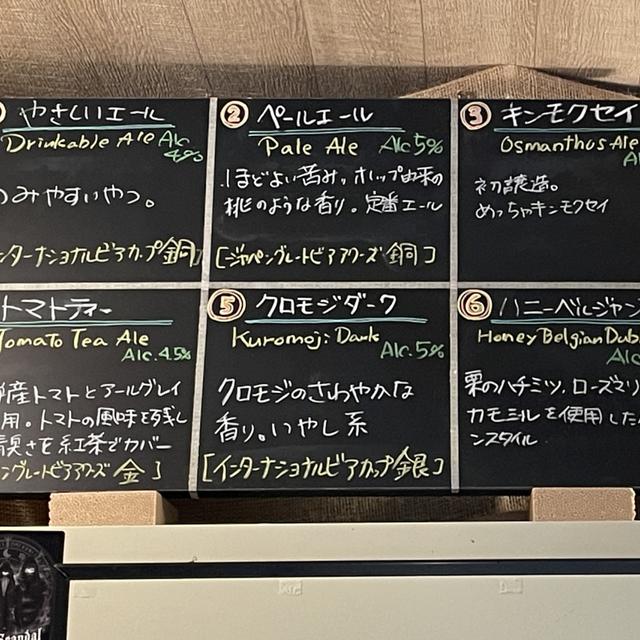 やさしいエール
Drinkable Ale Alc
4%
のみやすいやつ。
ンターナショナルビアカップ銅]
② ペールエール
Pale Ale Alc 5%
ほどよい苦み。ホップ由来の
桃のような香り。定番エール
[ジャパングレートビアアワーズ 銅]
③ キンモクセイ
Osmanthus Ale
初醸造。
めっちゃキンモクセイ
トマトティー
Tomato Tea Ale
Alc. 4.5%
産トマトとアールグレイ
用。トマトの風味を残し
臭さを紅茶でカバー
ングレートビアアワーズ 金]
⑤ クロモジダーク
Kuromoji Dark
Alc. 5%
クロモジのさわやかな
香り。いやし系
[インターナショナルビアカップ銀]
⑥ ハニーベルジャン
Honey Belgian Dub
Alc
栗のハチミツ、ローズマリ
カモミルを使用した
ンスタイル
Scandal